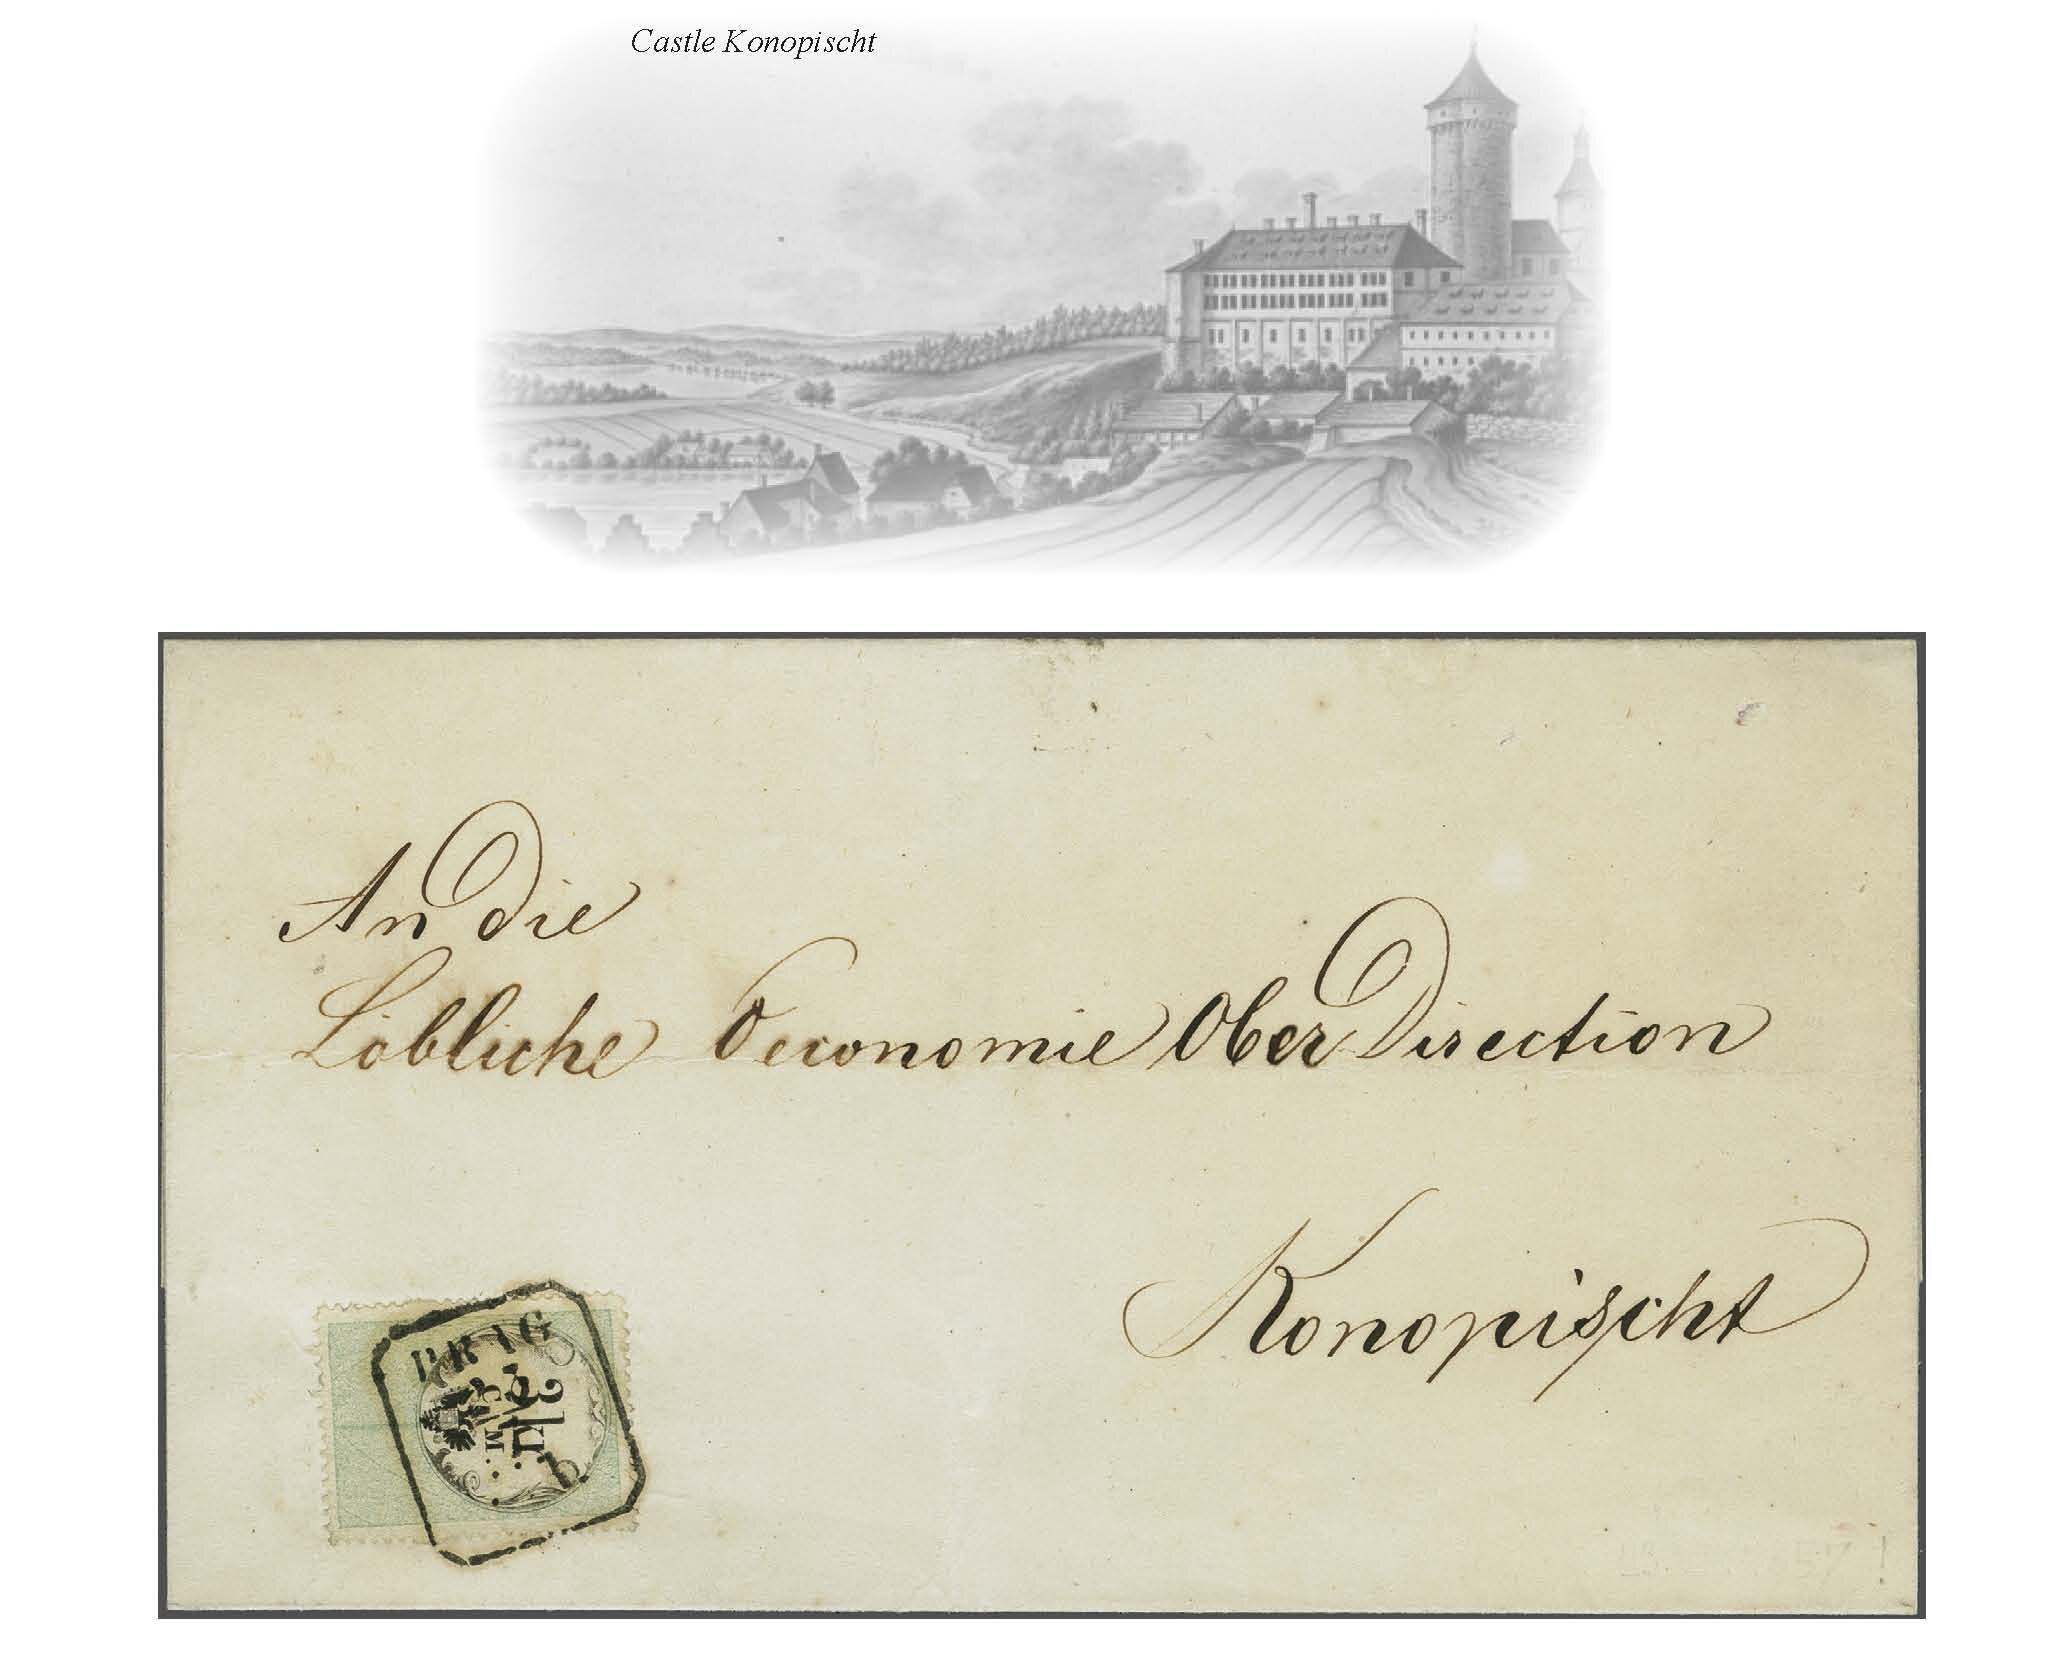 Castle Konopischt
An die
Löbliche Oeconomie Ober Direction
Konopischt
PRAG
57!